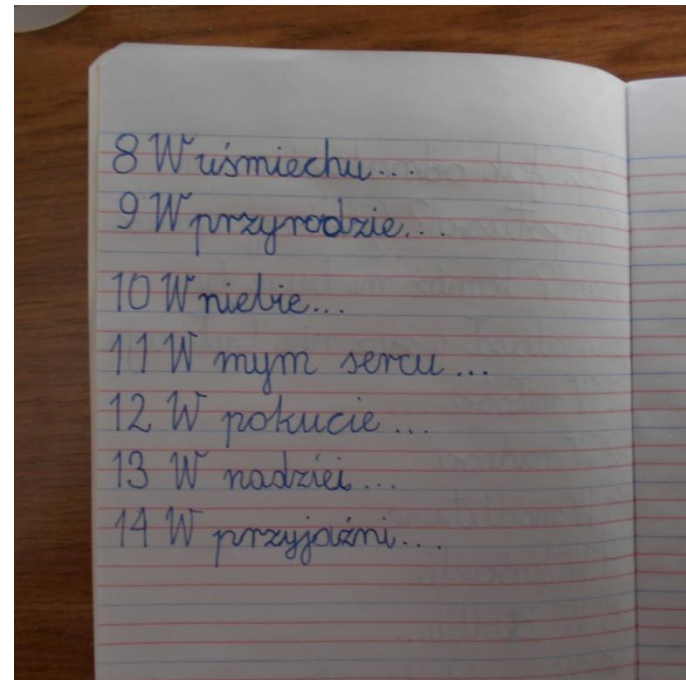 8 W uśmiechu...
9 W przyrodzie...
10 W niebie...
11 W mym sercu...
12 W pokucie...
13 W nadziei...
14 W przyjaźni...